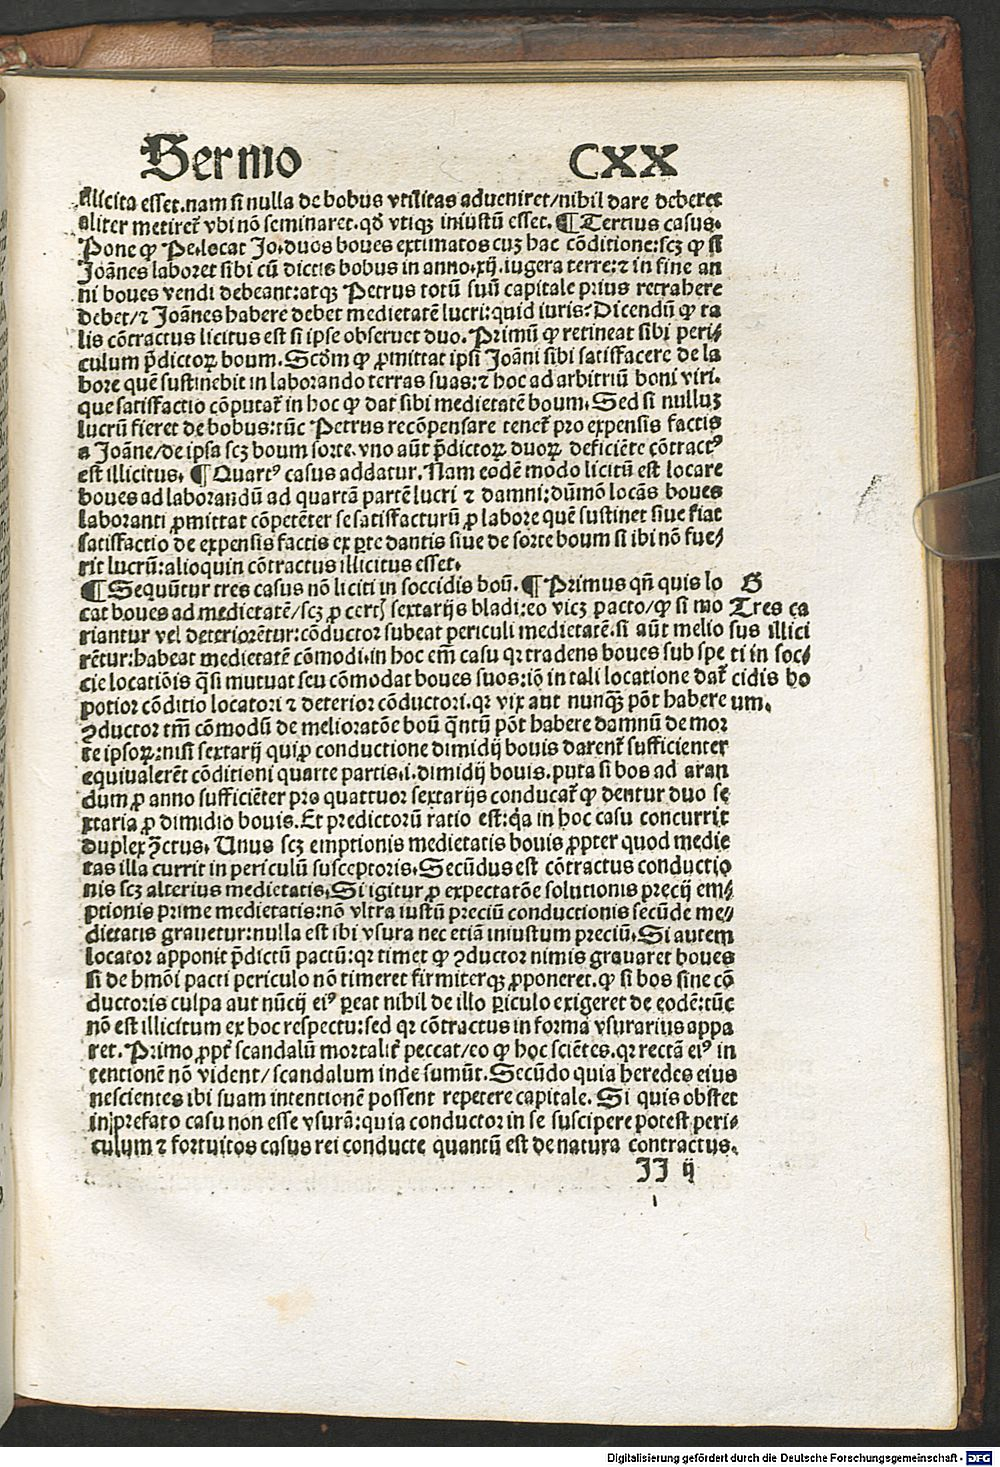 Sermo CXX
illicita esset. nam si nulla de bobus vtilitas adueniret/nihil dare deberet
aliter metiret᷑ vbi nō seminaret. qđ vtiqꝫ iniustū esset. ¶ Tertius casus.
Pone ꝙ Pe. locat Jo. duos boues extimatos cuꝫ hac cōditione: scꝫ ꝙ si
Joānes laboret sibi cū dictis bobus in anno. xij. iugera terre: ⁊ in fine an
ni boues vendi debeant: atqꝫ Petrus totū suū capitale prius retrahere
debet/⁊ Joānes habere debet medietatē lucri: quid iuris: Dicendū ꝙ ta
lis cōtractus licitus est si ipse obseruet duo. Primū ꝙ retineat sibi peri⸗
culum p̄dictoꝝ boum. Scđm ꝙ ꝓmittat ipsi Joāni sibi satisfacere de la
bore quē sustinebit in laborando terras suas: ⁊ hoc ad arbitriū boni viri.
que satisfactio cōputat᷑ in hoc ꝙ dat sibi medietatē boum. Sed si nulluꝫ
lucrū fieret de bobus: tūc Petrus recōpensare tenet᷑ pro expensis factis
a Joāne/de ipsa scꝫ boum sorte. vno aūt p̄dictoꝝ duoꝝ deficiēte cōtractꝰ
est illicitus. ¶ Quartꝰ casus addatur. Nam eodē modo licitū est locare
boues ad laborandū ad quartā partē lucri ⁊ damni: dūmō locās boues
laboranti ꝓmittat cōpetēter se satisfacturū ꝓ labore quē sustinet siue fiat
satisfactio de expensis factis ex ꝑte dantis siue de sorte boum si ibi nō fue⸗
rit lucrū: alioquin cōtractus illicitus esset.
¶ Sequūtur tres casus nō liciti in soccidis boū. ¶ Primus qn̄ quis lo
cat boues ad medietatē/scꝫ ꝓ certꝭ sextarijs bladi: eo vicꝫ pacto/ꝙ si mo
riantur vel deteriorētur: cōductor subeat periculi medietatē. si aūt melio
rētur: habeat medietatē cōmodi. in hoc em̄ casu qꝛ tradens boues sub spe
cie locatiōis q̄si mutuat seu cōmodat boues suos: iō in tali locatione dat᷑
potior cōditio locatori ⁊ deterior cōductori. qꝛ vix aut nunqꝫ pōt habere
ꝯductor tm̄ cōmodū de melioratōe boū q̄ntū pōt habere damnū de mor
te ipsoꝝ: nisi sextarij qui ꝓ conductione dimidij bouis darent᷑ sufficienter
equiualerēt cōditioni quarte partis. i. dimidij bouis. puta si bos ad aran
dum ꝓ anno sufficiēter pro quattuor sextarijs conducat᷑ ꝙ dentur duo se
xtaria ꝓ dimidio bouis. Et predictorū ratio est: q̇a in hoc casu concurrit
duplex ꝯ̄ctus. Unus scꝫ emptionis medietatis bouis ꝓpter quod medie
tas illa currit in periculū susceptoris. Secūdus est cōtractus conductio
nis scꝫ alterius medietatis. Si igitur ꝓ expectatōe solutionis precij em⸗
ptionis prime medietatis: nō vltra iustū preciū conductionis secūde me⸗
dietatis grauetur: nulla est ibi vsura nec etiā iniustum preciū. Si autem
locator apponit p̄dictū pactū: qꝛ timet ꝙ ꝯductor nimis grauaret boues
si de hm̄oi pacti periculo nō timeret firmiterqꝫ ꝓponeret. ꝙ si bos sine cō
ductoris culpa aut nūcij eiꝰ ꝑeat nihil de illo ꝑiculo exigeret de eodē: tūc
nō est illicitum ex hoc respectu: sed qꝛ cōtractus in forma vsurarius appa
ret. Primo ꝓpt᷑ scandalū mortalit᷑ peccat/eo ꝙ hoc sciētes. qꝛ rectā eiꝰ in
tentionē nō vident/scandalum inde sumūt. Secūdo quia heredes eius
nescientes ibi suam intentionē possent repetere capitale. Si quis obstet
in prefato casu non esse vsurā: quia conductor in se suscipere potest peri⸗
culum ⁊ fortuitos casus rei conducte quantū est de natura contractus.
JJ ij
G
Tres ca
sus illici
ti in soc⸗
cidis bo
um.
Digitalisierung gefördert durch die Deutsche Forschungsgemeinschaft - DFG